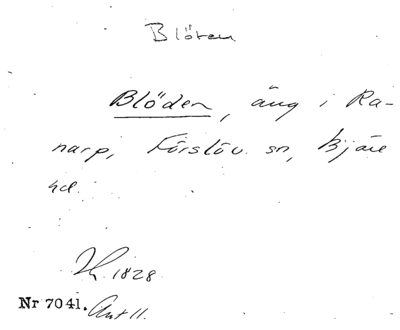 Blöten
Blöden, äng i Ra-
narp, Förslöv. sn, Bjäre
hd.
1828
Nr 7041. Akt 11.